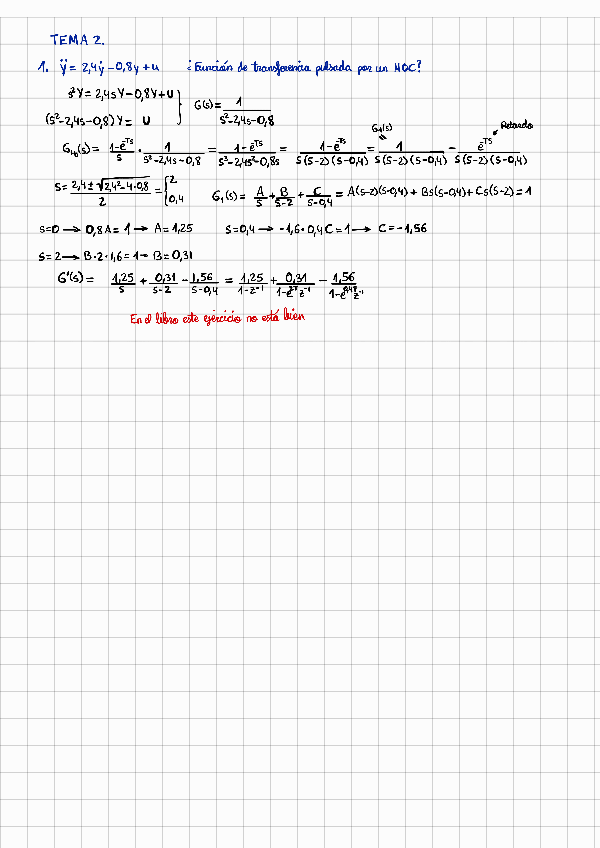 TEMA 2.
1. ÿ = 2,4ẏ - 0,8y + u ¿Función de transferencia pulsada por un MOC?
s²Y = 2,4sY - 0,8Y + U
(s² - 2,4s - 0,8) Y = U } G(s) = 1 / (s² - 2,4s - 0,8)
G₁(s) Retardo
G_H0(s) = (1 - e^-Ts)/s · 1/(s² - 2,4s - 0,8) = (1 - e^-Ts)/(s³ - 2,4s² - 0,8s) = (1 - e^-Ts)/(s(s-2)(s-0,4)) = 1/(s(s-2)(s-0,4)) - e^-Ts/(s(s-2)(s-0,4))
s = (2,4 ± √(2,4² - 4·0,8))/2 = { 2 0,4
G₁(s) = A/s + B/(s-2) + C/(s-0,4) = A(s-2)(s-0,4) + Bs(s-0,4) + Cs(s-2) = 1
s=0 → 0,8A = 1 → A = 1,25 s = 0,4 → -1,6·0,4C = 1 → C = -1,56
s = 2 → B·2·1,6 = 1 → B = 0,31
G'(s) = 1,25/s + 0,31/(s-2) - 1,56/(s-0,4) = 1,25/(1-z⁻¹) + 0,31/(1-e^2T z⁻¹) - 1,56/(1-e^0,4T z⁻¹)
En el libro este ejercicio no está bien